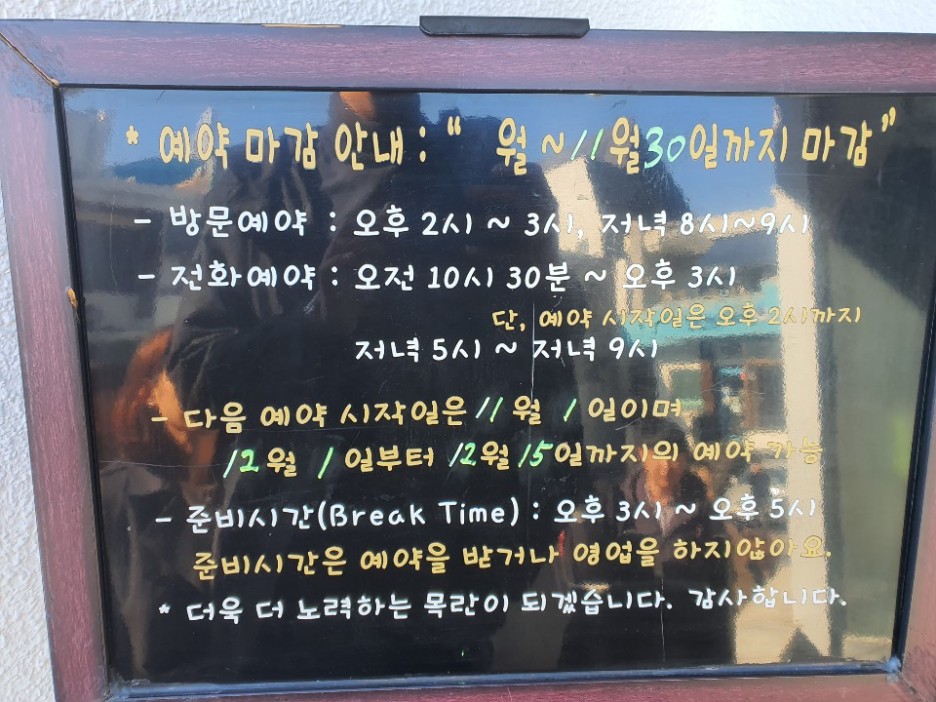 * 예약 마감 안내 : “ 월 ~ 11월30일까지 마감”
- 방문예약 : 오후 2시 ~ 3시, 저녁 8시~9시
- 전화예약 : 오전 10시 30분 ~ 오후 3시
단, 예약 시작일은 오후 2시까지
저녁 5시 ~ 저녁 9시
- 다음 예약 시작일은 11월 1일이며
12월 1일부터 12월 15일까지의 예약 가능
- 준비시간(Break Time) : 오후 3시 ~ 오후 5시
준비시간은 예약을 받거나 영업을 하지않아요.
* 더욱 더 노력하는 목란이 되겠습니다. 감사합니다.